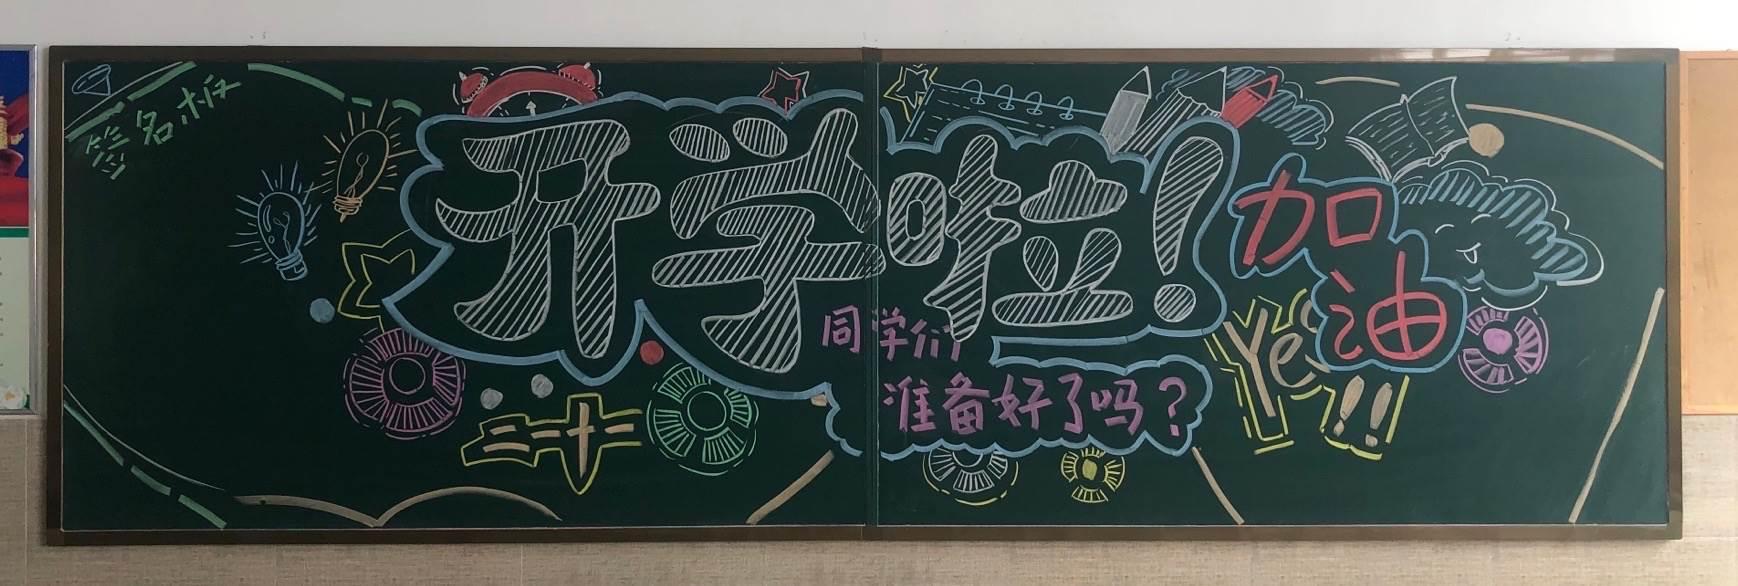 签名板
开学啦!
加油
同学们
准备好了吗?
Yes!!
二一十二